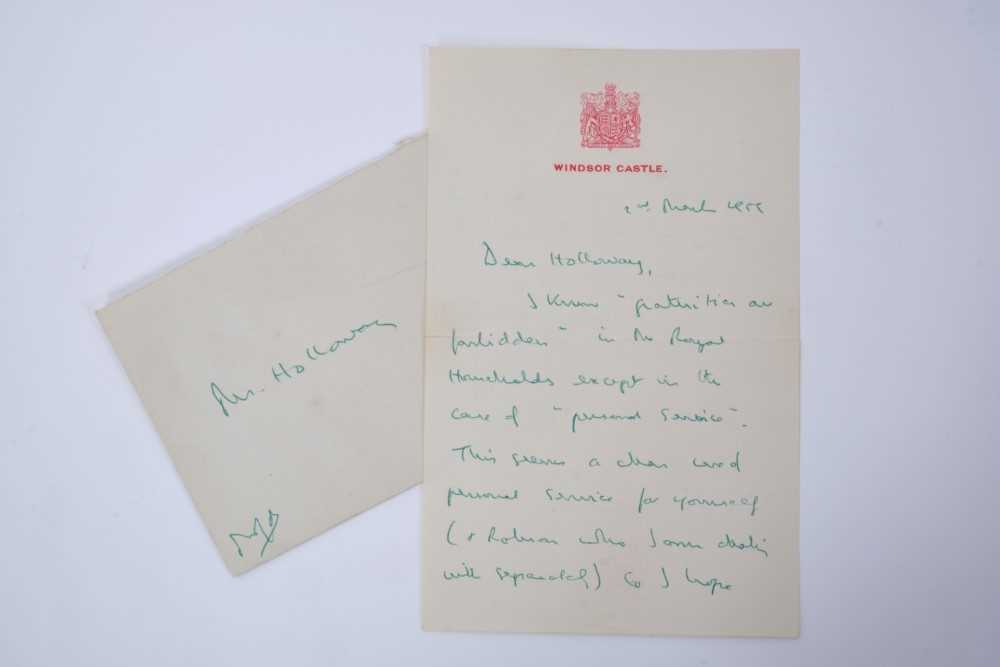 Mr. Holloway
WINDSOR CASTLE.
2nd March 1955
Dear Holloway,
I know "gratuities are
forbidden" in the Royal
Households except in the
case of "personal service".
This seems a clear case of
personal service for yourself
(& Robinson who I am dealing
with separately) so I hope